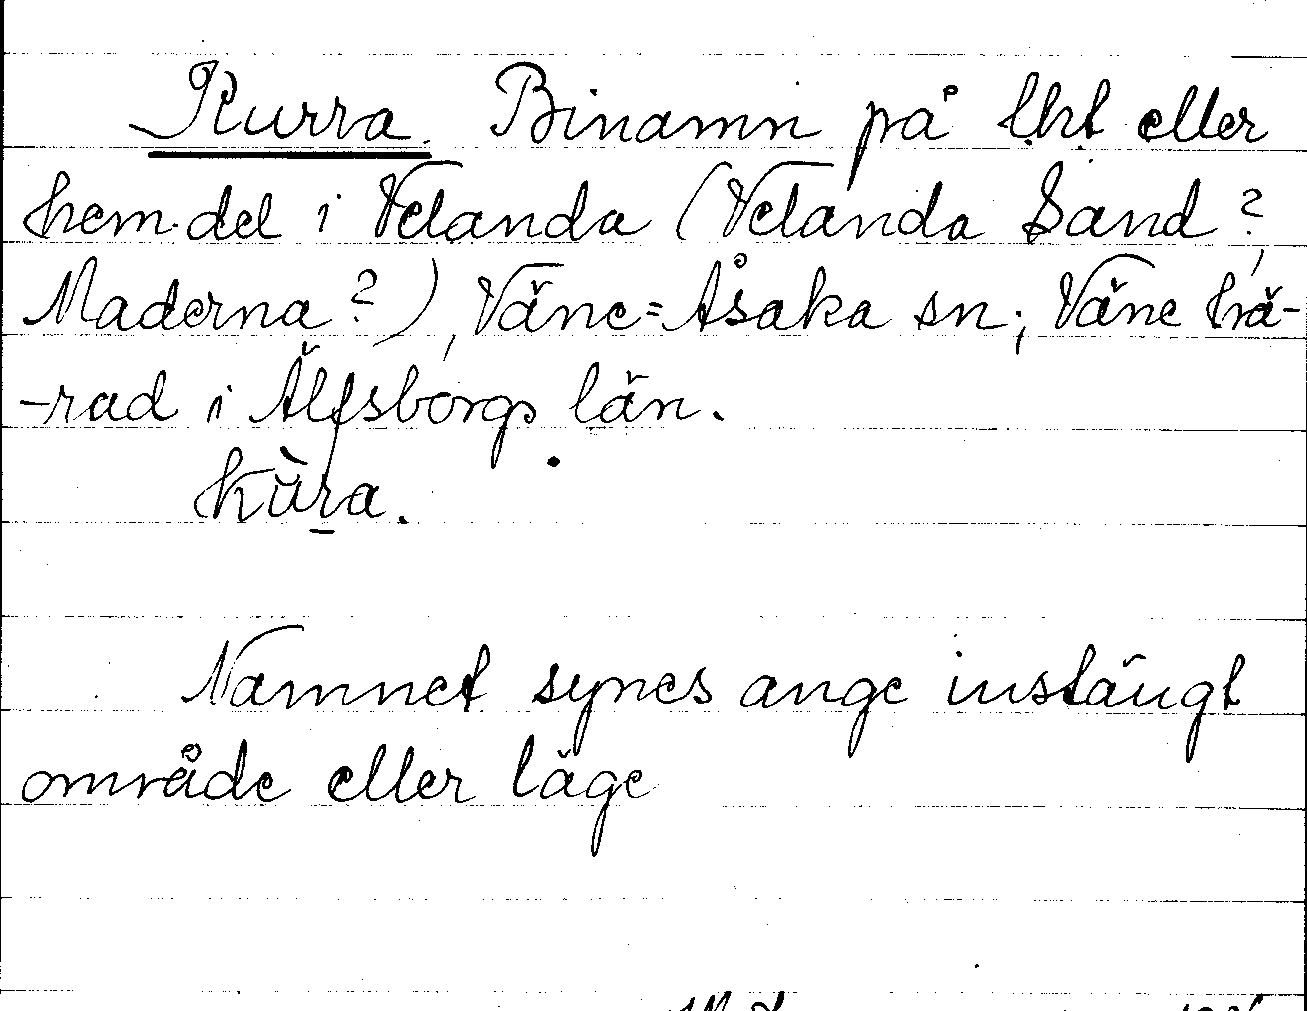 Kurra. Binamn på lht eller
hem.del i Velanda (Velanda Sand?,
Maderna?), Väne=Åsaka sn; Väne hä-
-rad i Älfsborgs län.
kùra.
Namnet synes ange instängt
område eller läge